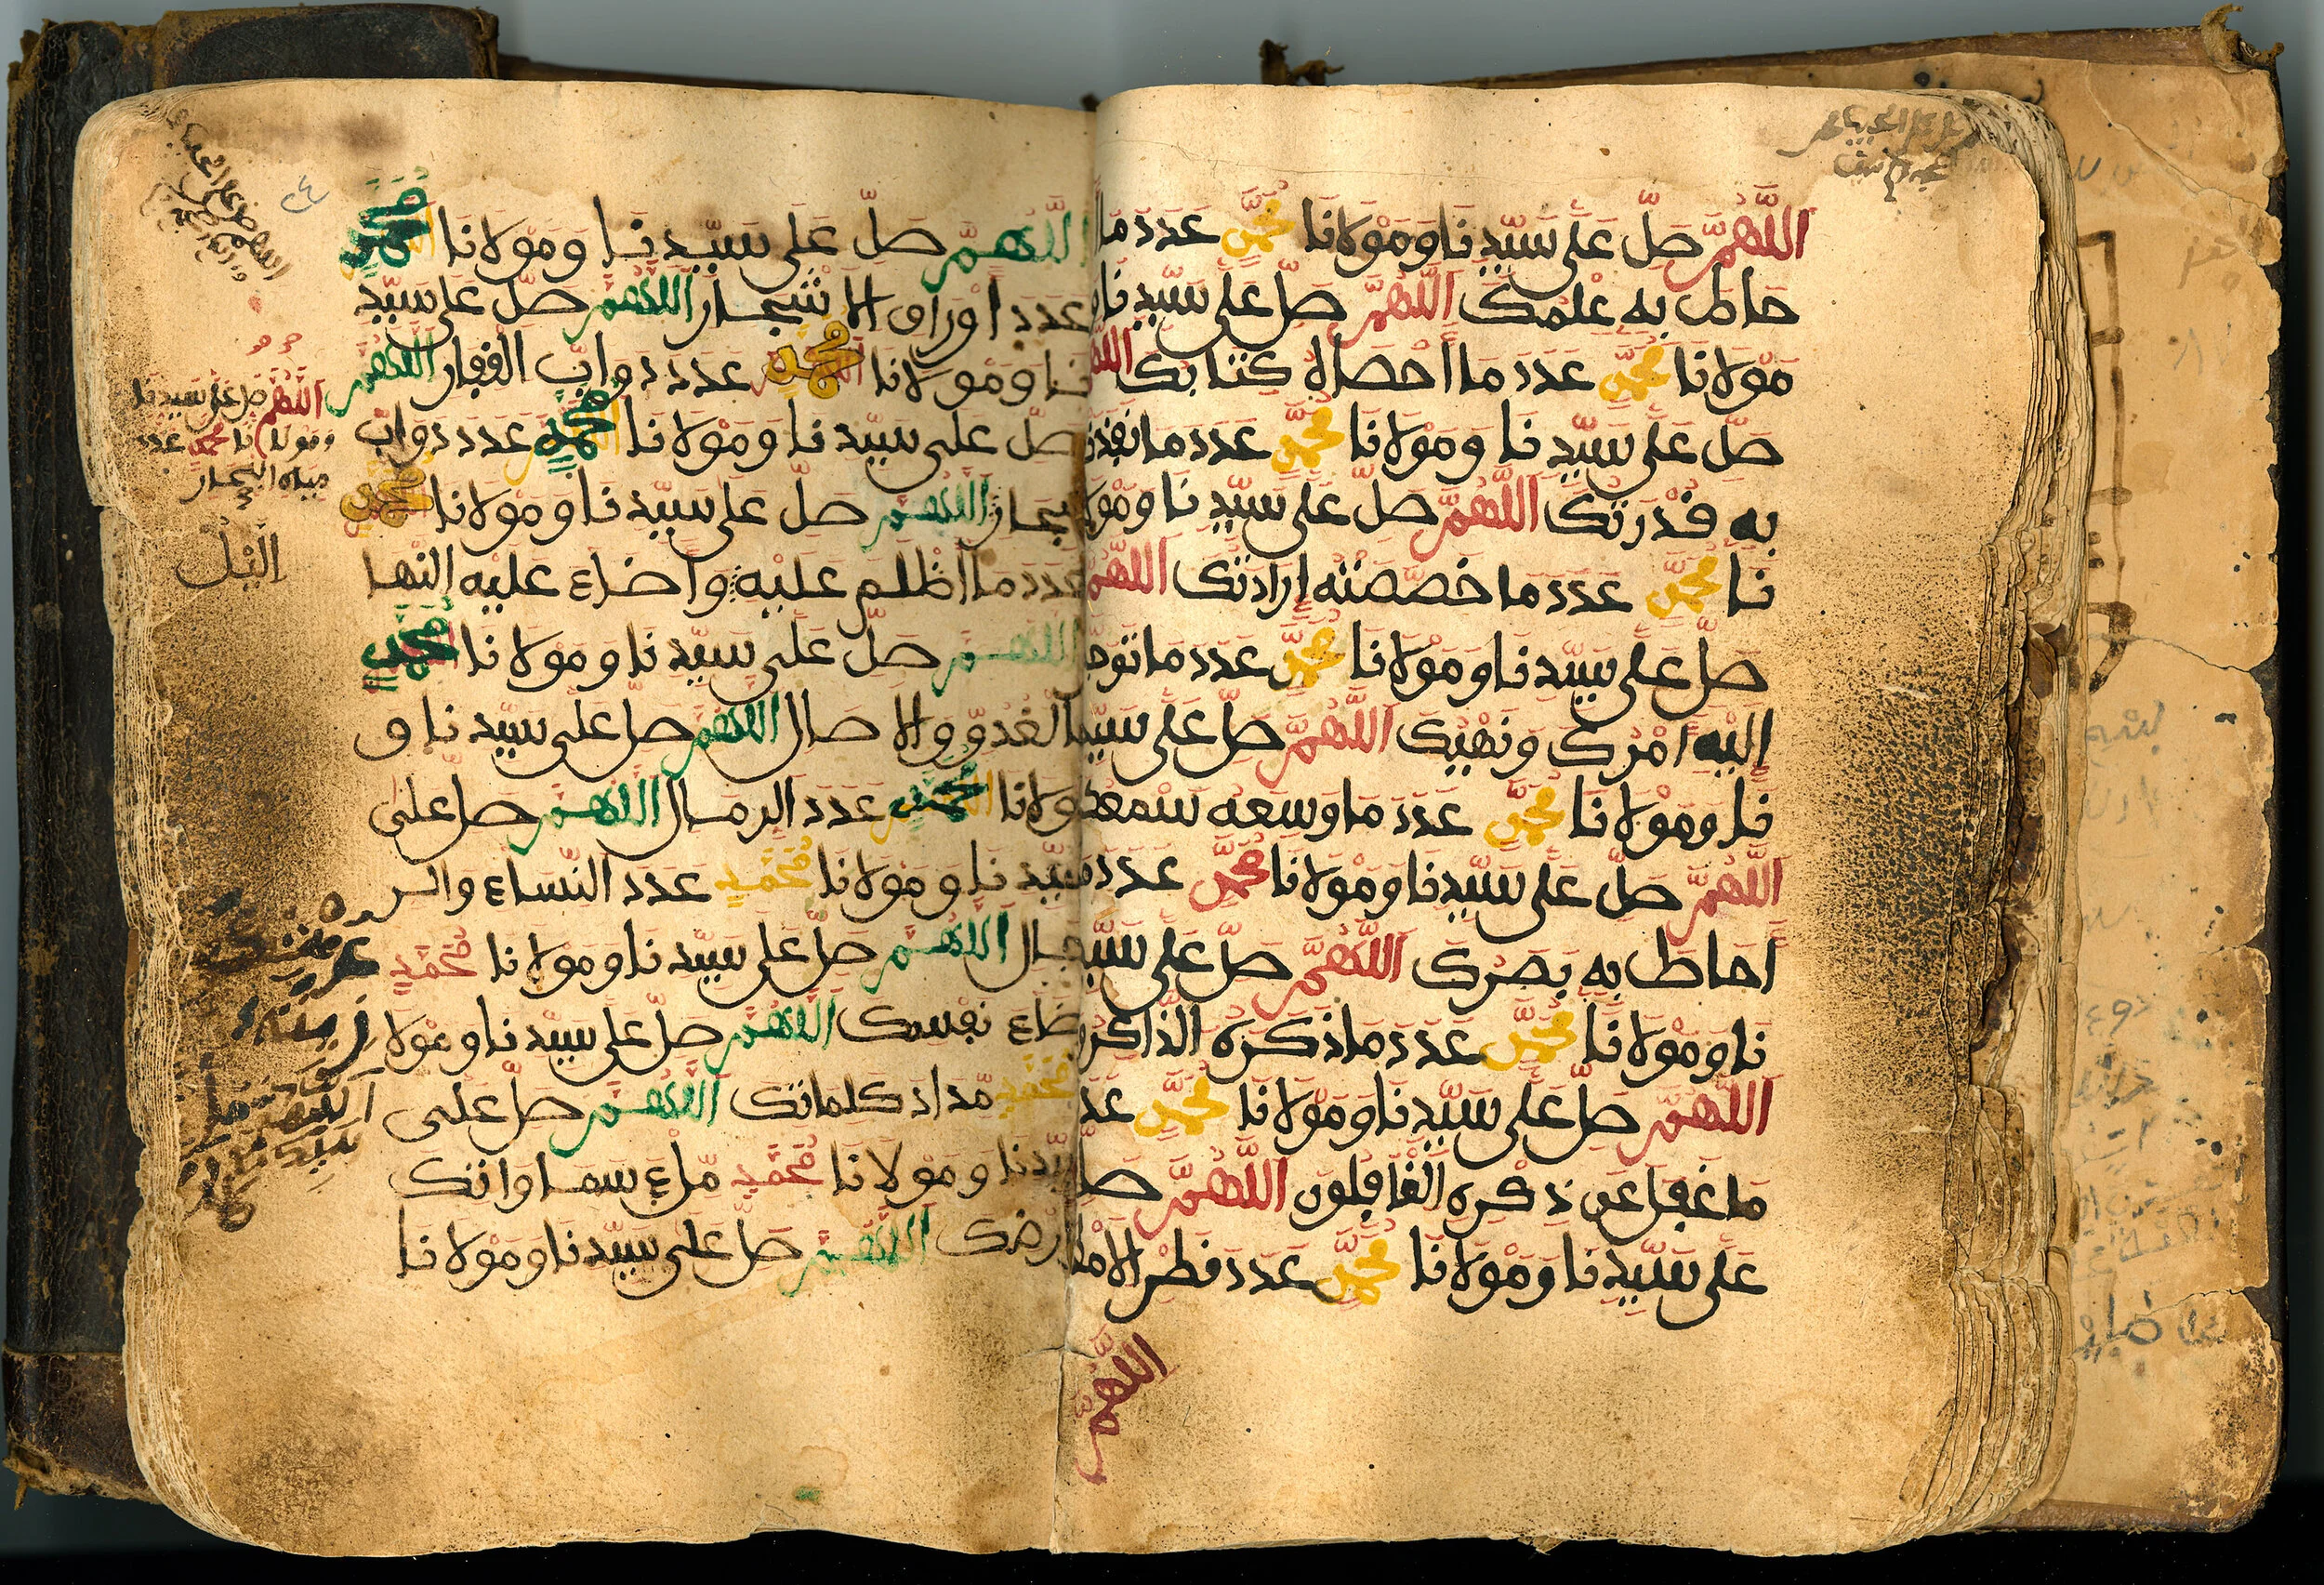 اللَّهُمَّ صَلِّ عَلَى سَيِّدِنَا وَمَوْلَانَا مُحَمَّدٍ عَدَدَ مَا أَ
حاط به عِلْمُكَ اللَّهُمَّ صَلِّ عَلَى سَيِّدِنَا وَ
مَوْلَانَا مُحَمَّدٍ عَدَدَ مَا أَحْصَاهُ كِتَابُكَ اللهم
صَلِّ عَلَى سَيِّدِنَا وَمَوْلَانَا مُحَمَّدٍ عَدَدَ مَا نَفَذَتْ
به قُدْرَتُكَ اللَّهُمَّ صَلِّ عَلَى سَيِّدِنَا وَمَوْلَا
نَا مُحَمَّدٍ عَدَدَ مَا خَصَّصَتْهُ إِرَادَتُكَ اللَّهُمَّ
صَلِّ عَلَى سَيِّدِنَا وَمَوْلَانَا مُحَمَّدٍ عَدَدَ مَا تَوَجَّهَ
إِلَيْهِ أَمْرُكَ وَنَهْيُكَ اللَّهُمَّ صَلِّ عَلَى سَيِّدِ
نَا وَمَوْلَانَا مُحَمَّدٍ عَدَدَ مَا وَسِعَهُ سَمْعُكَ
اللَّهُمَّ صَلِّ عَلَى سَيِّدِنَا وَمَوْلَانَا مُحَمَّدٍ عَدَدَ مَا
أَحَاطَ بِهِ بَصَرُكَ اللَّهُمَّ صَلِّ عَلَى سَيِّدِ
نَا وَمَوْلَانَا مُحَمَّدٍ عَدَدَ مَا ذَكَرَهُ الذَّاكِرُونَ
اللَّهُمَّ صَلِّ عَلَى سَيِّدِنَا وَمَوْلَانَا مُحَمَّدٍ عَدَدَ
مَا غَفَلَ عَن ذِكْرِهِ الْغَافِلُونَ اللَّهُمَّ صَلِّ
عَلَى سَيِّدِنَا وَمَوْلَانَا مُحَمَّدٍ عَدَدَ قَطْرِ الْأَمْطَارِ
اللَّهُمَّ
اللَّهُمَّ صَلِّ عَلَى سَيِّدِنَا وَمَوْلَانَا مُحَمَّدٍ
عَدَدَ أَوْرَاقِ الْأَشْجَارِ اللَّهُمَّ صَلِّ عَلَى سَيِّدِ
نَا وَمَوْلَانَا مُحَمَّدٍ عَدَدَ دَوَابِّ الْقِفَارِ اللَّهُمَّ
صَلِّ عَلَى سَيِّدِنَا وَمَوْلَانَا مُحَمَّدٍ عَدَدَ دَوَابِّ
البحار اللَّهُمَّ صَلِّ عَلَى سَيِّدِنَا وَمَوْلَانَا مُحَمَّدٍ
عَدَدَ مَا أَظْلَمَ عَلَيْهِ وَأَضَاءَ عَلَيْهِ النَّهَا
اللَّهُمَّ صَلِّ عَلَى سَيِّدِنَا وَمَوْلَانَا مُحَمَّدٍ
بالْغُدُوِّ وَالْآصَالِ اللَّهُمَّ صَلِّ عَلَى سَيِّدِنَا وَ
مولانا مُحَمَّدٍ عَدَدَ الرِّمَالِ اللَّهُمَّ صَلِّ عَلَى
سَيِّدِنَا وَمَوْلَانَا مُحَمَّدٍ عَدَدَ النِّسَاءِ وَالر
جال اللَّهُمَّ صَلِّ عَلَى سَيِّدِنَا وَمَوْلَانَا مُحَمَّدٍ
رضاء نفسك اللَّهُمَّ صَلِّ عَلَى سَيِّدِنَا وَمَوْلَا
مُحَمَّدٍ مِّدَادَ كَلِمَاتِكَ اللَّهُمَّ صَلِّ عَلَى
سَيِّدِنَا وَمَوْلَانَا مُحَمَّدٍ مِّلْءَ سَمَاوَاتِكَ
وأرضك اللَّهُمَّ صَلِّ عَلَى سَيِّدِنَا وَمَوْلَانَا
اللَّهُمَّ صل على سيدنا
ومولانا محمد عدد
مياه البحار
الَّيْلُ